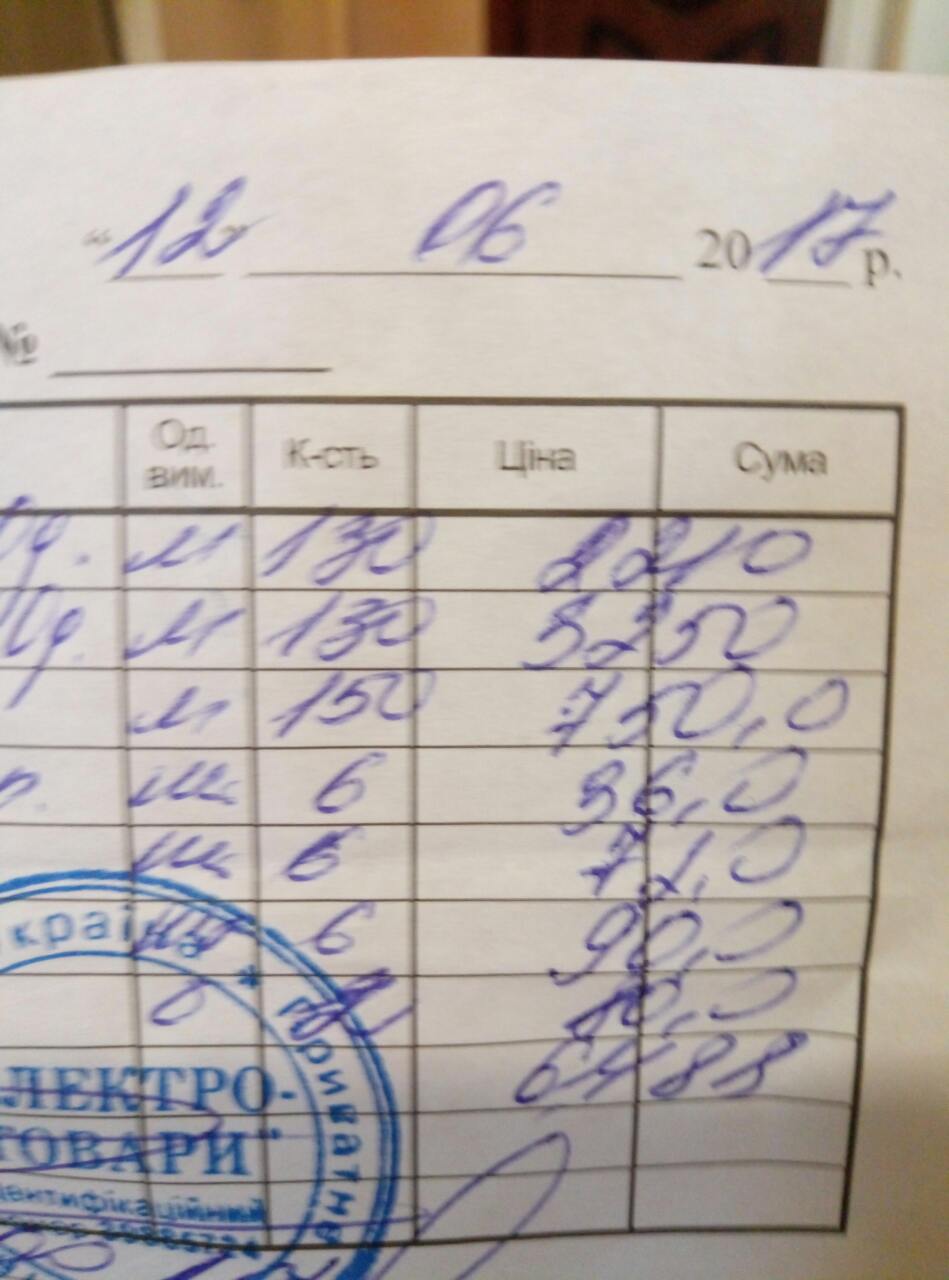 "12" 06 2017 р.
№
Од. вим. К-сть Ціна Сума
м 130 2210
м 130 3250
м 150 750,0
шт 6 36,0
шт 6 72,0
6 90,0
6488
країна * Приватне
ЛЕКТРО-
ТОВАРИ"
ідентифікаційний